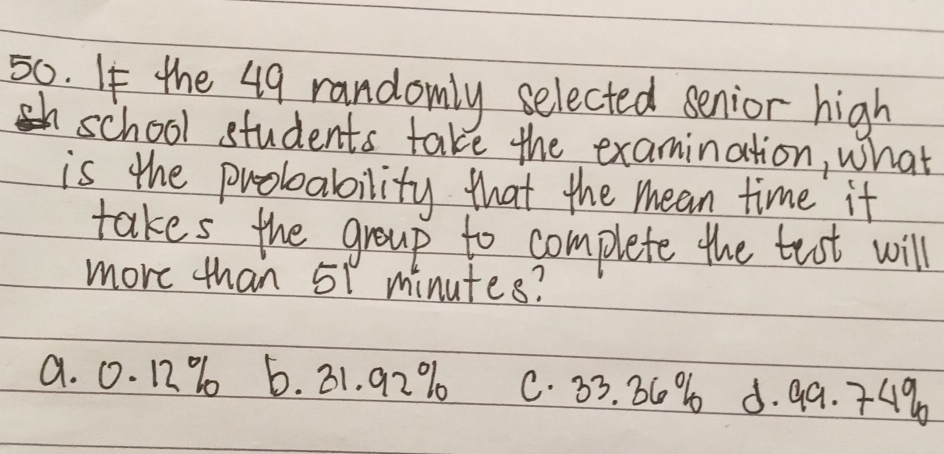 50. If the 49 randomly selected senior high
school students take the examination, what
is the probability that the mean time it
takes the group to complete the test will
more than 51 minutes?
a. 0.12% b. 31.92% c. 33.36% d. 99.74%